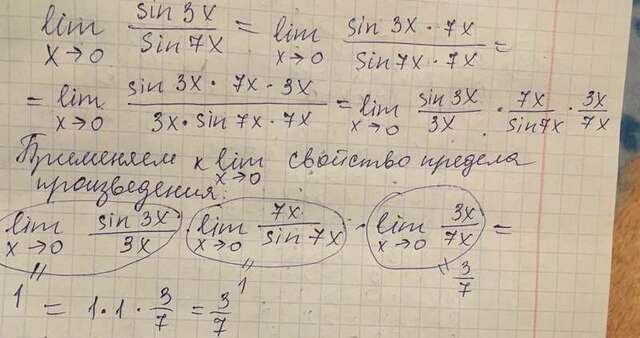 lim x→0 sin 3x / sin 7x = lim x→0 sin 3x · 7x / sin 7x · 7x =
= lim x→0 sin 3x · 7x · 3x / 3x · sin 7x · 7x = lim x→0 sin 3x / 3x · 7x / sin 7x · 3x / 7x
Применяем к lim x→0 свойство предела
произведения:
lim x→0 sin 3x / 3x · lim x→0 7x / sin 7x · lim x→0 3x / 7x =
" " " 3/7
1 = 1·1·3/7 = 3/7 1